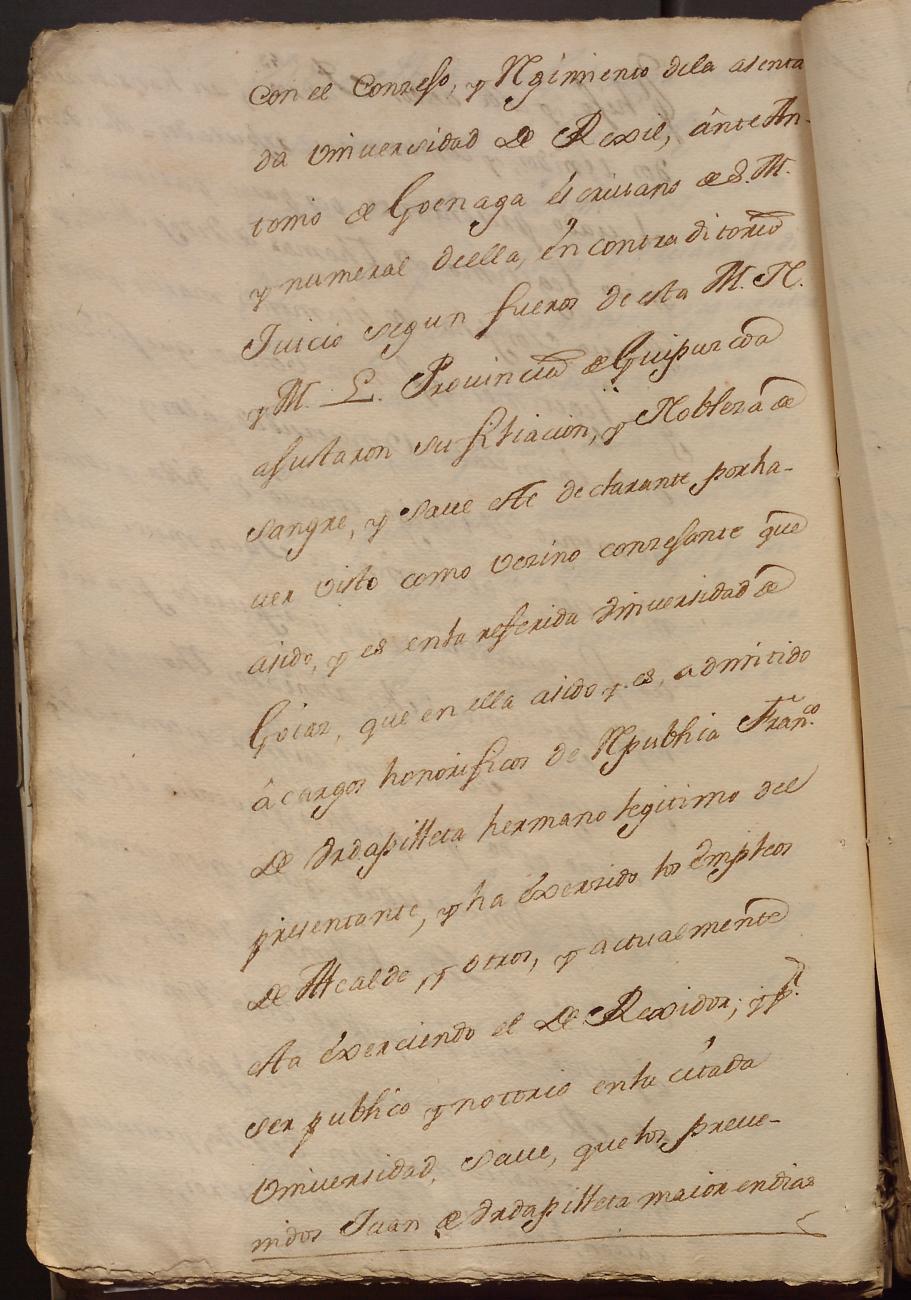 con el Conzejo, y Rgimiento dela asenta
da Vniversidad de Rexil, ânte An-
tonio de Goenaga éscrivano de S. M.
y numeral deella, én contraditorio
Juicio segun fueros de esta M. N.
y M. L. Provincia de Guipuzcoa
ajustaron su filiacion, y Nobleza de
sangre, y save este declarante por ha-
uer visto como vezino conzejante que
asido, y es enla referida Vniuersidad de
Goiaz, que en ella asido y es, admitido
â cargos honorificos de Rpublica Fran.co
de Vrdapilleta hermano legitimo del
presentante, y ha éxerzido los émpleos
de Alcalde, y otros, y actualmente
esta éxerciendo el de Rexidor, y p.r
ser publico y notorio enla citada
Vniuersidad, Save, que los preue-
nidos Juan de Vrdapilleta maior endias